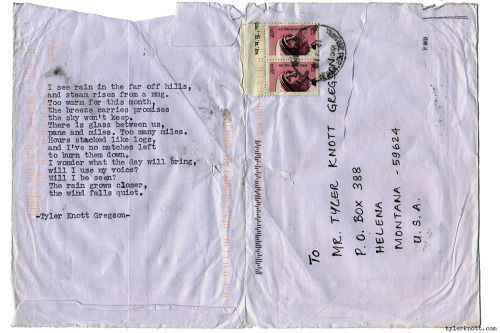 I see rain in the far off hills,
and steam rises from a mug.
Too warm for this month,
the breeze carries promises
the sky won't keep.
There is glass between us,
pane and miles. Too many miles.
Hours stacked like logs,
and I've no matches left
to burn them down.
I wonder what the day will bring,
will I use my voice?
Will I be seen?
The rain grows closer,
the wind falls quiet.
-Tyler Knott Gregson-
TO
MR. TYLER KNOTT GREGSON
P.O. BOX 388
HELENA
MONTANA - 59624
U.S.A.
tylerknott.com